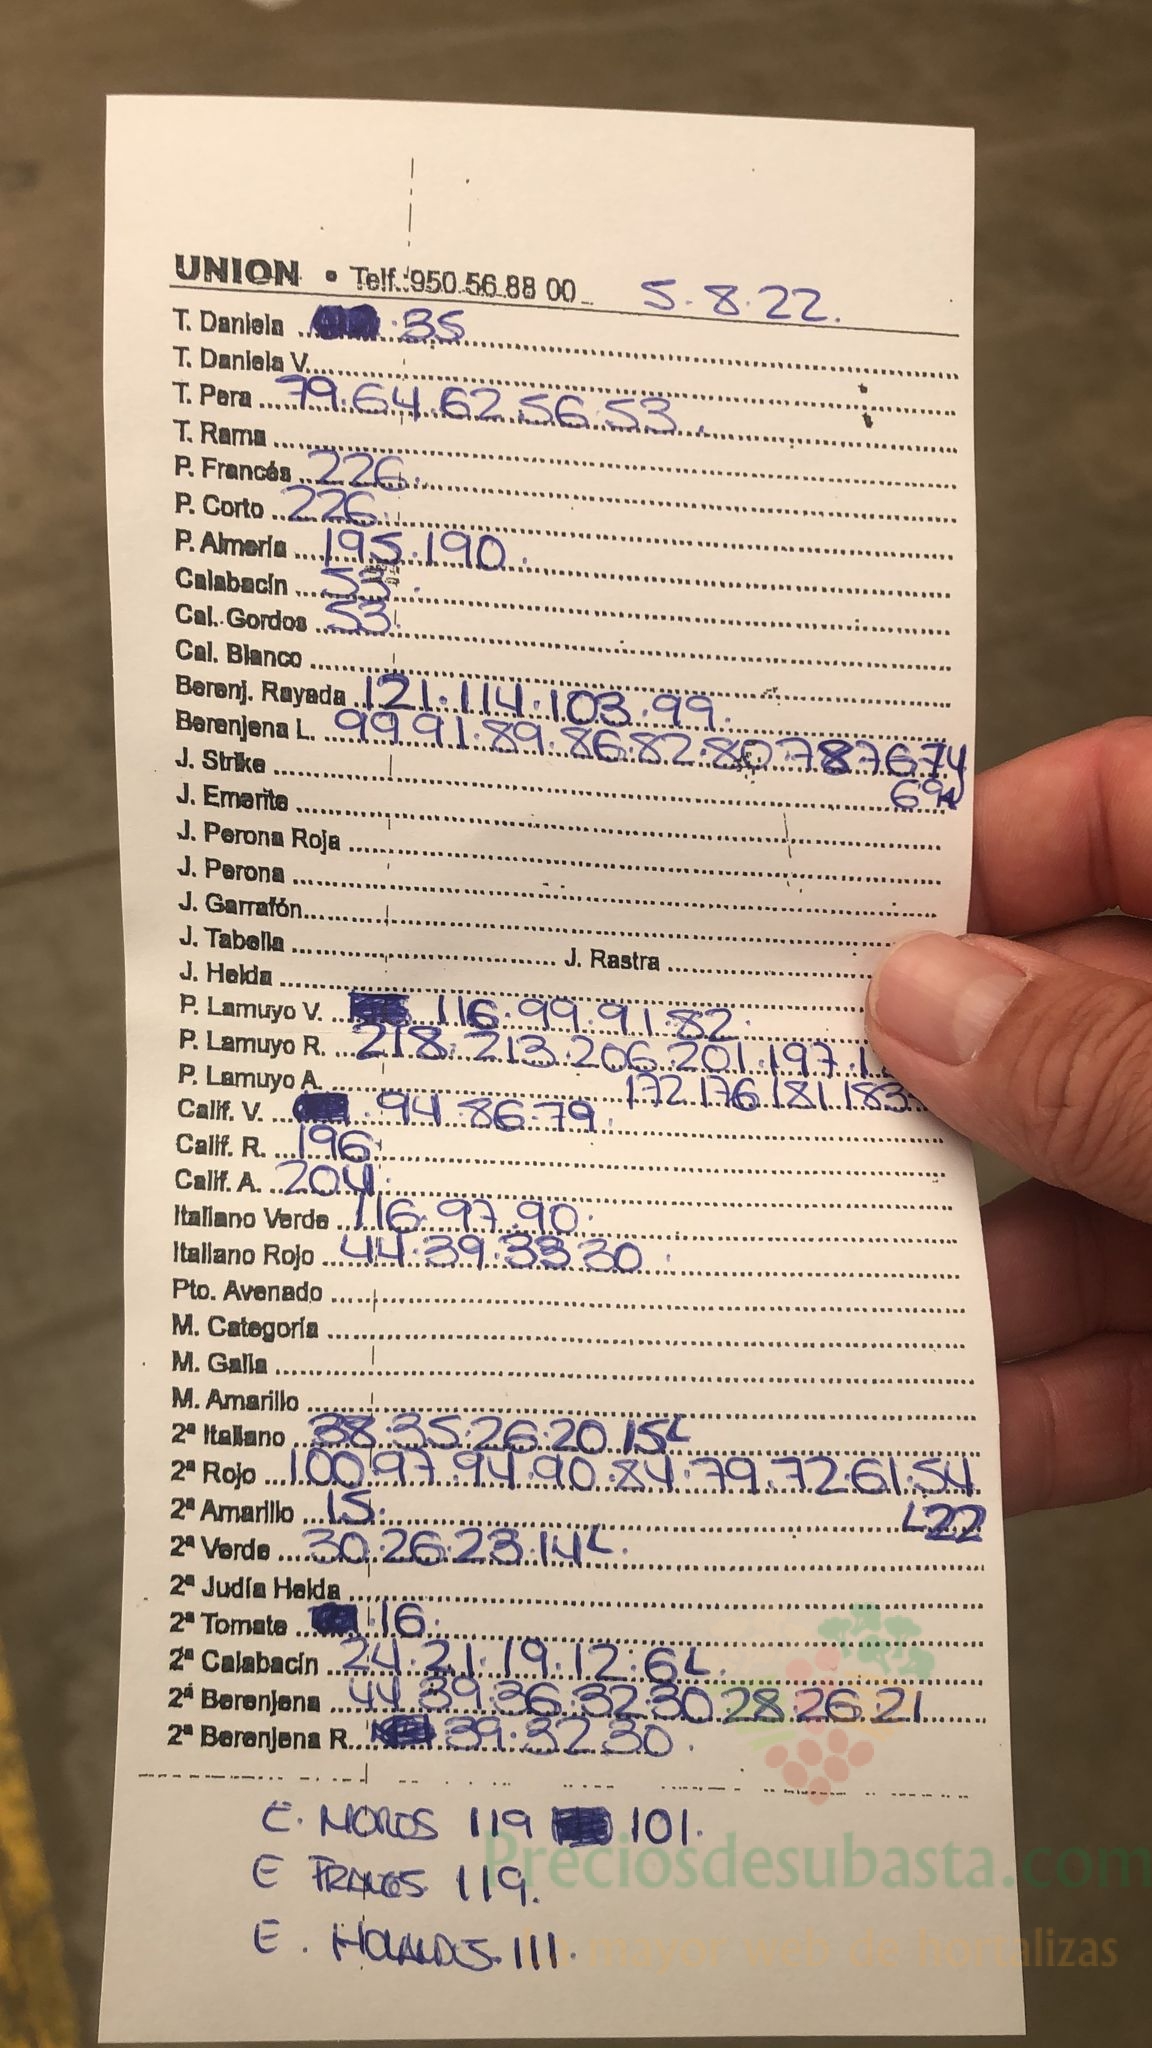 UNION • Telf.: 950 56 88 00 5.8.22.
T. Daniela 35
T. Daniela V.
T. Pera 79.64.62.56.53.
T. Rama
P. Francés 226.
P. Corto 226.
P. Almería 195.190.
Calabacín 53.
Cal. Gordos 53.
Cal. Blanco
Berenj. Rayada 121.114.103.99.
Berenjena L. 99.91.89.86.82.80.78 76 74
J. Strike
J. Emerite
J. Perona Roja
J. Perona
J. Garrafón
J. Tabella J. Rastra
J. Helda
P. Lamuyo V. 116.99.91.82.
P. Lamuyo R. 218.213.206.201.197.
P. Lamuyo A. 172.176.181.183
Calif. V. 94.86.79.
Calif. R. 196.
Calif. A. 204.
Italiano Verde 116.97.90.
Italiano Rojo 44.39.33 30.
Pto. Avenado
M. Categoría
M. Galla
M. Amarillo
2ª Italiano 38.35.26.20 15L
2ª Rojo 100.97.94.90.84.79.72.61.54
2ª Amarillo 15. L22
2ª Verde 30.26.23.14L.
2ª Judía Helda
2ª Tomate 16.
2ª Calabacín 24.21.19.12.6L.
2ª Berenjena 44.39.36.32.30.28.26.21
2ª Berenjena R. 39.32.30.
E. MOROS 119 101.
E 119.
E. 111.
Preciosdesubasta.com
mayor web de hortalizas